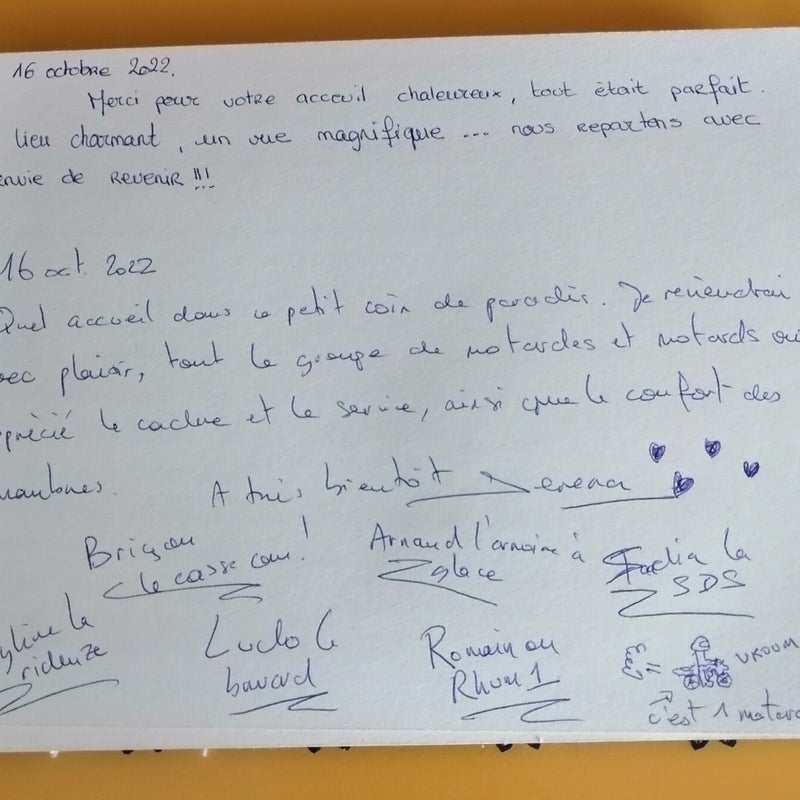 16 octobre 2022.
Merci pour votre acceuil chaleureux, tout était parfait.
lieu charmant, un vue magnifique ... nous repartons avec
envie de revenir !!!
16 oct. 2022
Quel accueil dans ce petit coin de paradis. Je reviendrai
avec plaisir, tout le groupe de motardes et motards ont
apprécié le cadre et le service, ainsi que le confort des
chambres. A très bientôt
Arnaud l'armoire à
glace
le casse cou!
la
SDS
Ludo le
bavard
Romain ou
Rhum 1
VROUM
c'est 1 motard